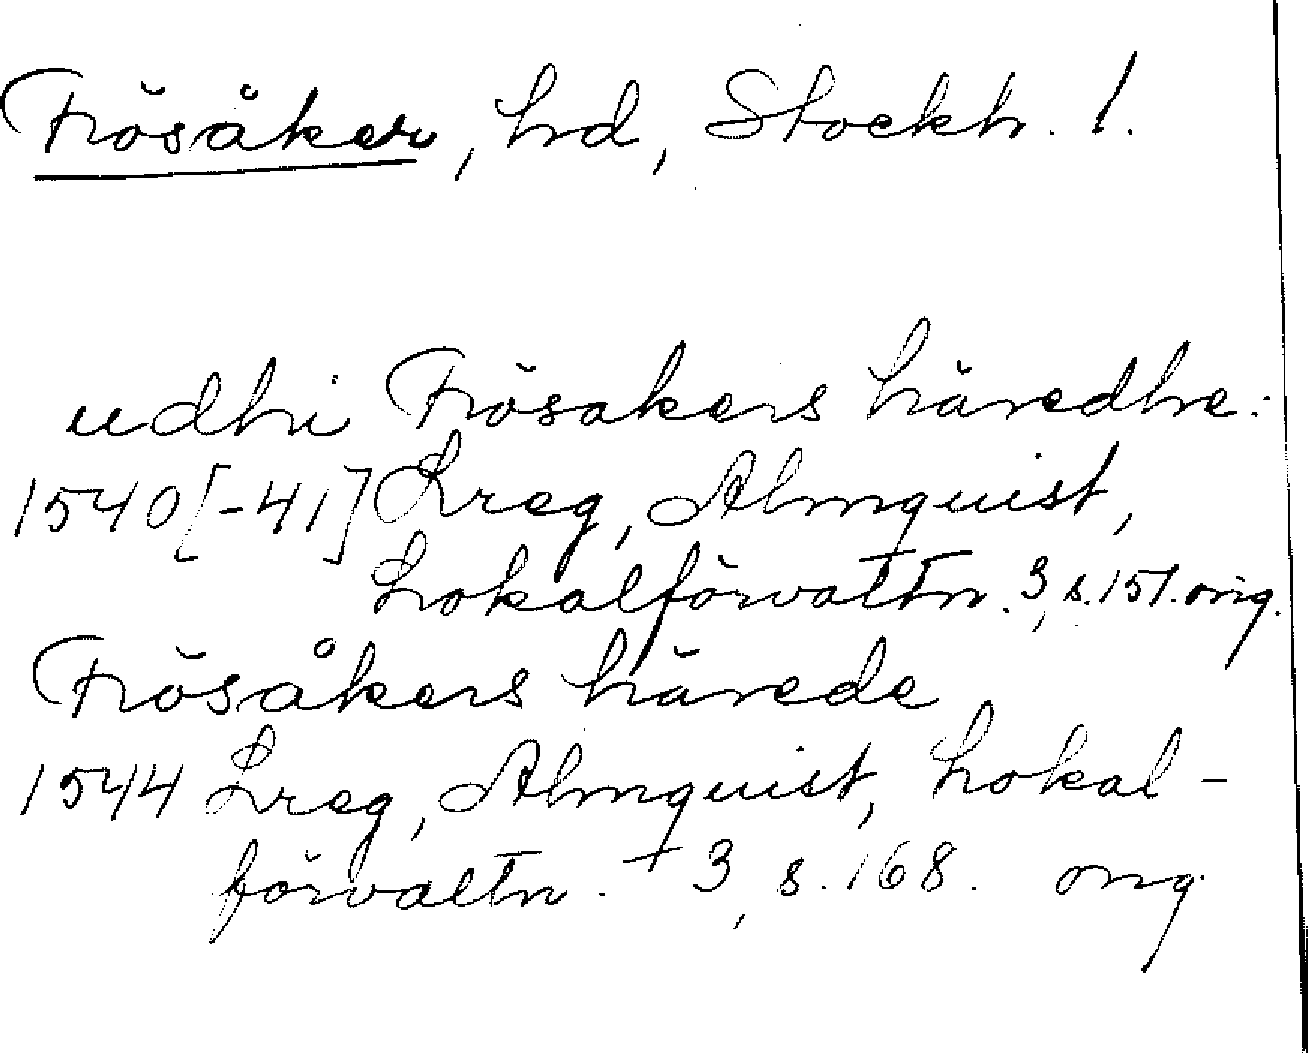 Frösåker, hd, Stockh. l.
udhi Frösakers häredhe:
1540[-41] Lreg, Almquist,
Lokalförvaltn. 3, s. 151. orig.
Frösåkers härede
1544 Lreg, Almquist, Lokal-
förvaltn. + 3, s. 168. orig.